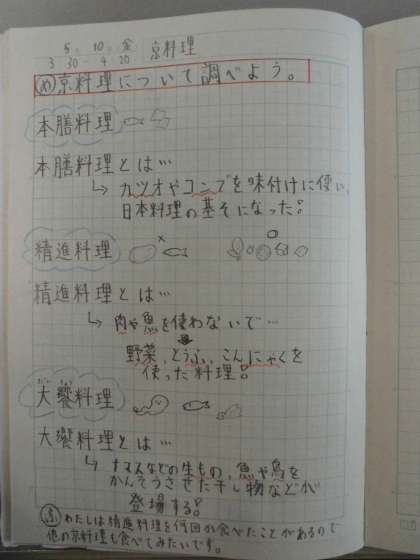 5. 10. 金 京料理
3 30 - 4 20
め 京料理について調べよう。
本膳料理
本膳料理とは…
↳ カツオやコンブを味付けに使い、
日本料理の基そになった!
精進料理
精進料理とは…
↳ 肉や魚を使わないで…
野菜、とうふ、こんにゃくを
使った料理!
大饗料理
大饗料理とは…
↳ すなどの生もの、魚や鳥を
かんそうさせた干し物などが
登場する!
ふ わたしは精進料理を何回か食べたことがあるので
他の京料理も食べてみたいです。